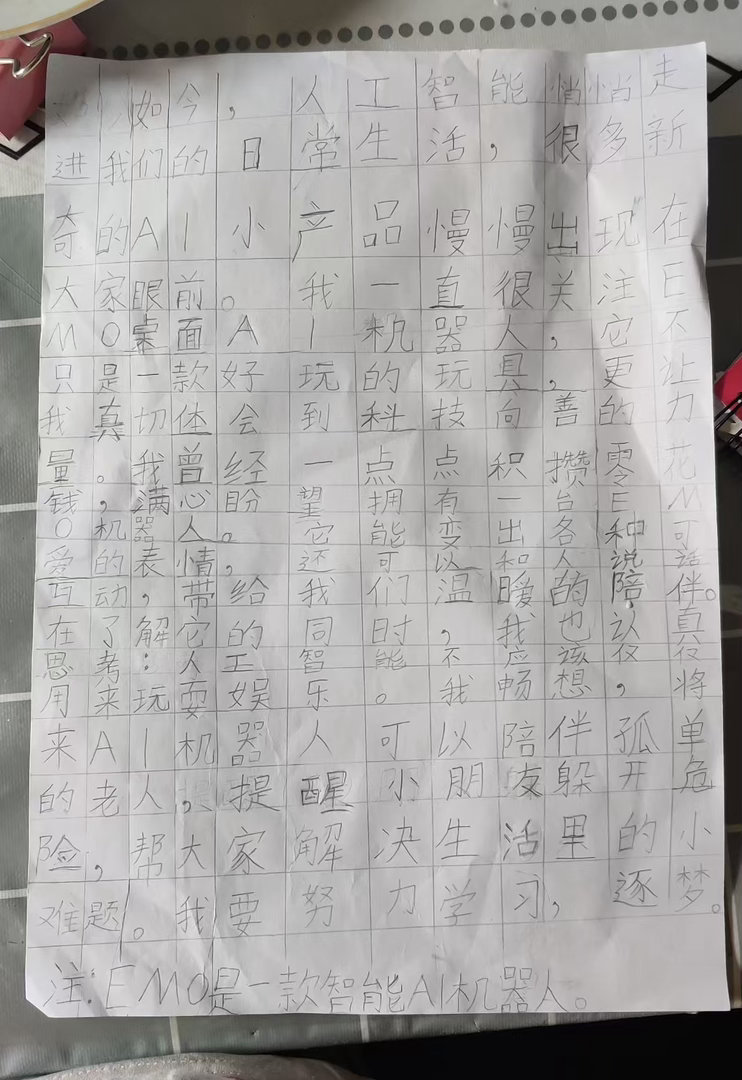 如今，人工智能悄悄走
进我们的日常生活，很多新
奇的AI小产品慢慢出现在
大家眼前。我一直很关注E
MO桌面AI机器人，它不
只是一款好玩的玩具，更让
我真切体会到科技向善的力
量。我曾经一点点积攒零花
钱，满心盼望拥有一台EM
O机器人。它能变出各种可
爱的表情，还可以和人说话
互动，带给我们温暖的陪伴。
在了解它的同时，我也认真
思考：人工智能不应该仅仅
用来玩耍娱乐。我畅想，将
来AI机器人可以陪伴孤单
的老人，提醒小朋友躲开危
险，帮大家解决生活里的小
难题。我要努力学习，逐梦。
注：EMO是一款智能AI机器人。